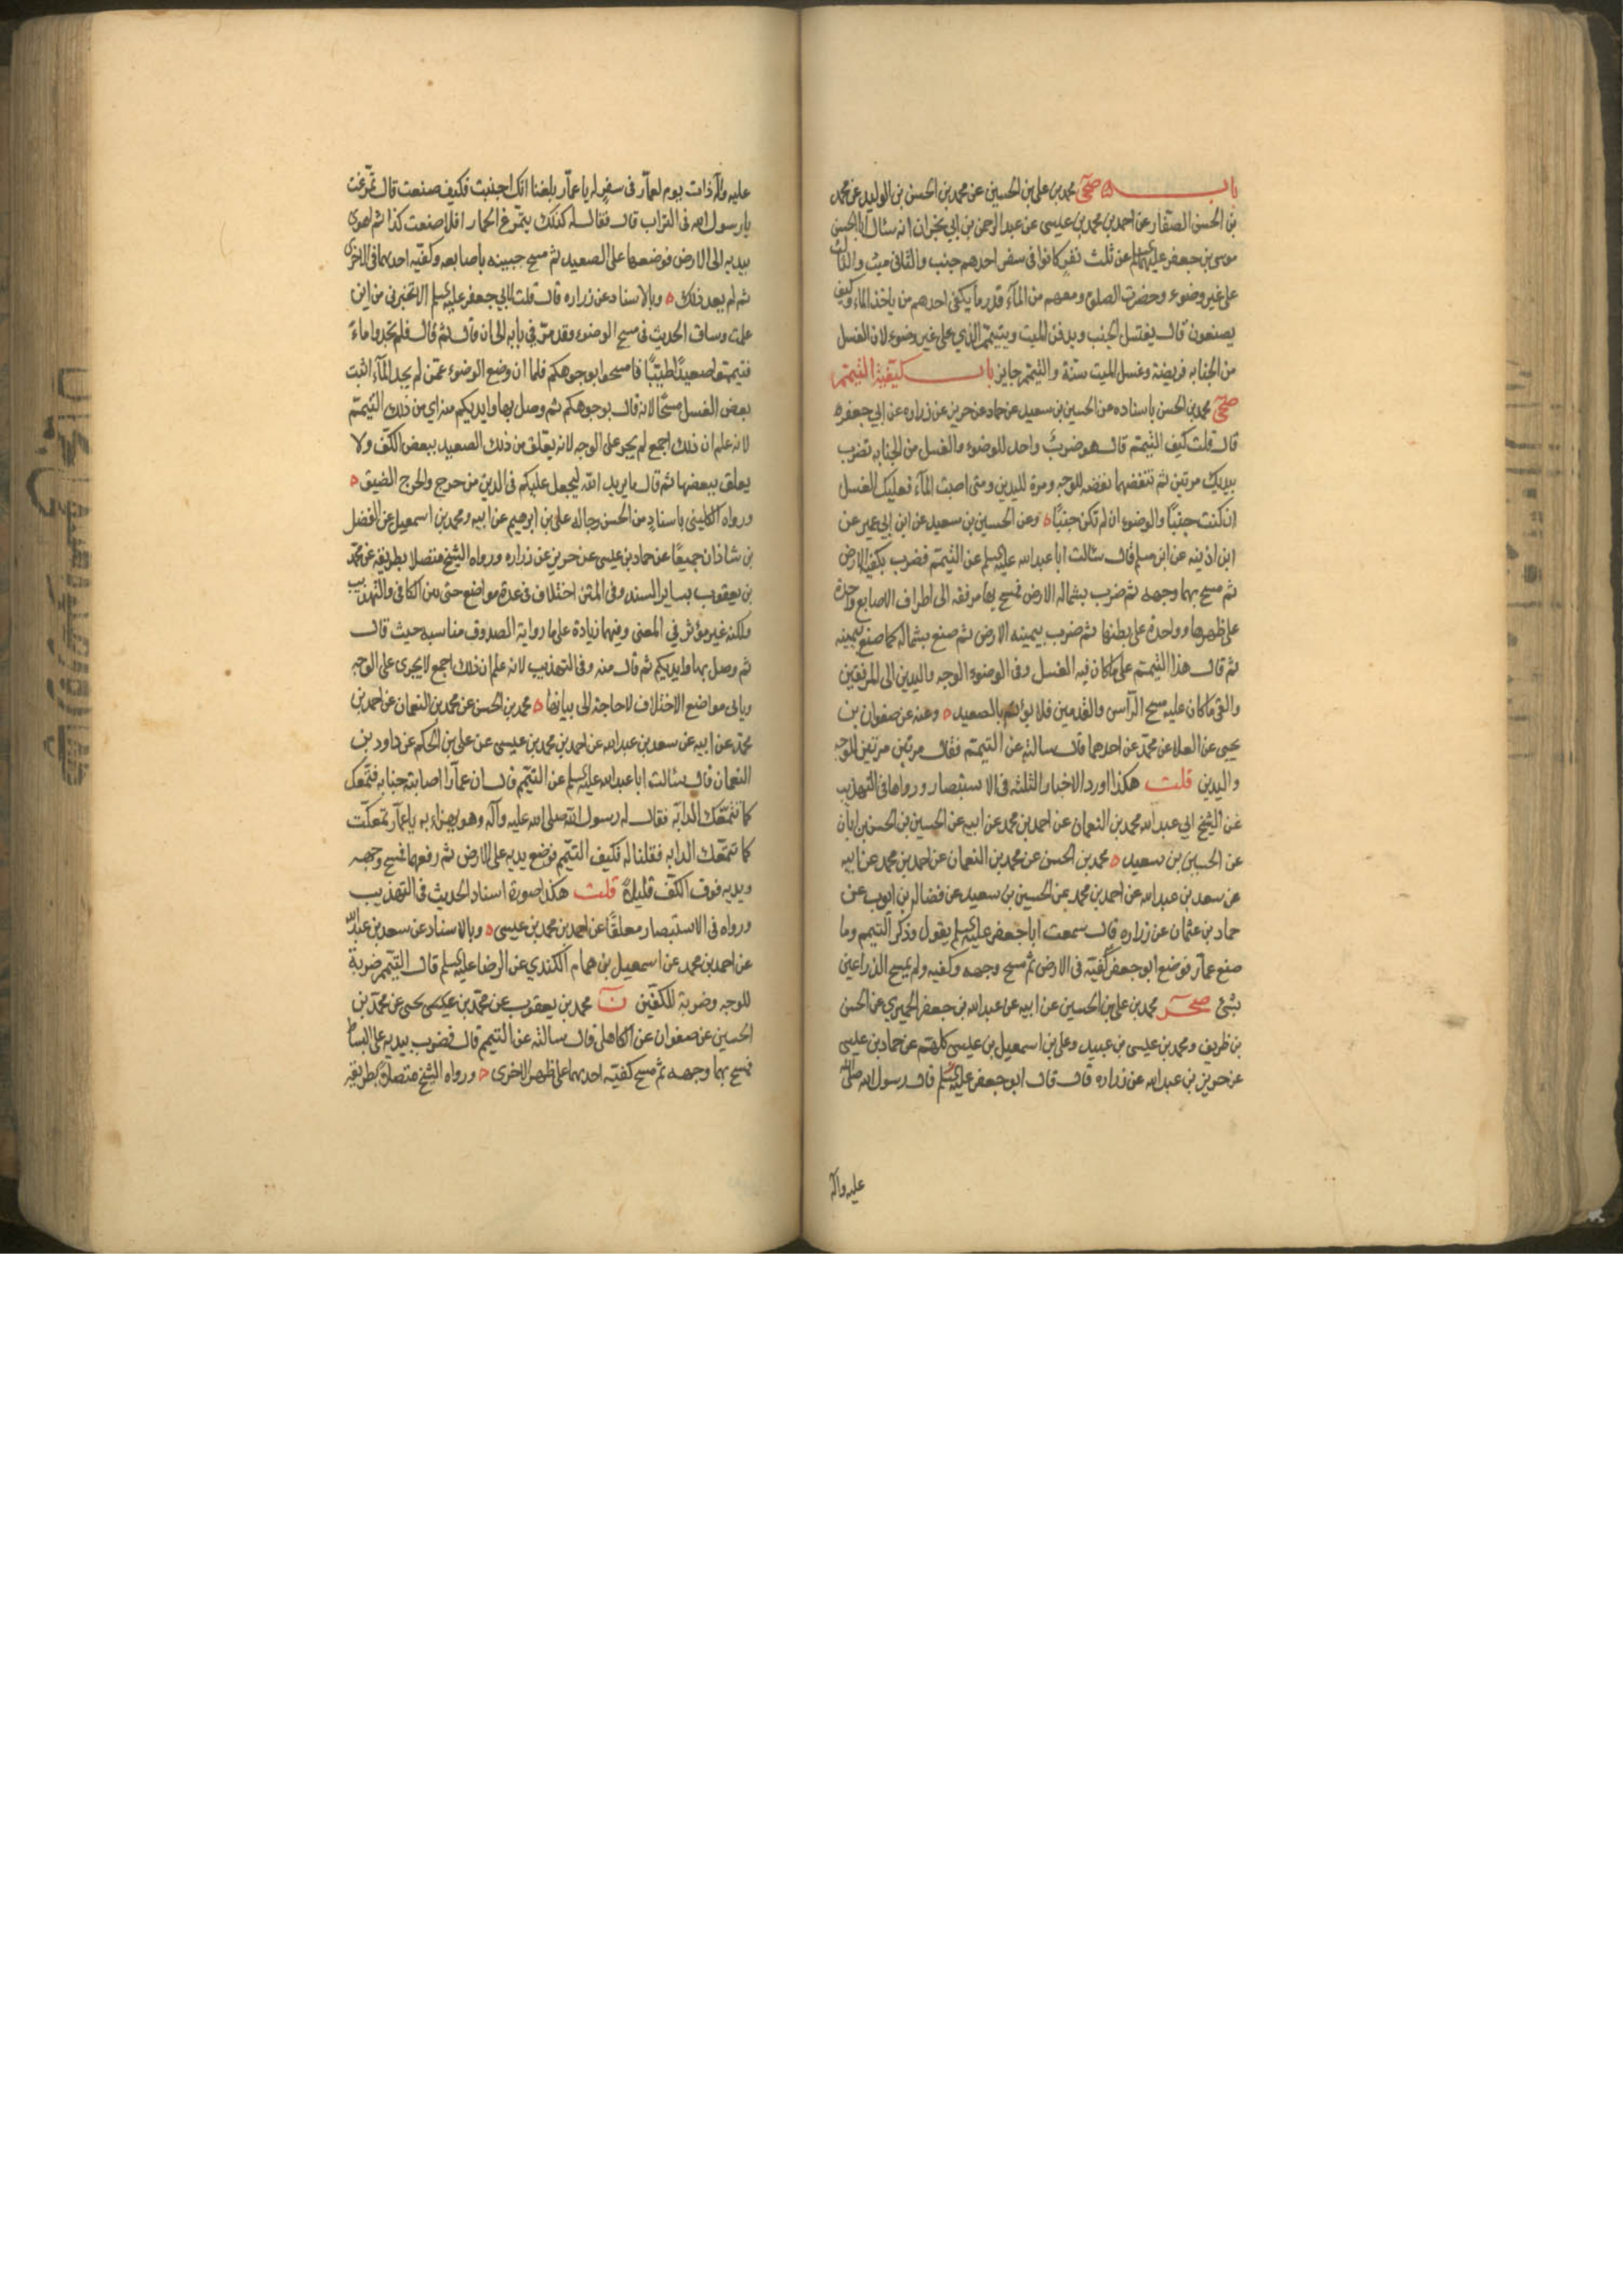 باب ۵ صحی محمد بن علی بن الحسین عن محمد بن الحسن بن الولید عن محمد
بن الحسن الصفار عن احمد بن محمد بن عیسی عن عبد الرحمن بن ابی نجران انه سئال ابا الحسن
موسی بن جعفر علیهما السلم عن ثلث نفر کانوا فی سفر احدهم جنب والثانی میت والثالث
علی غیر وضوء وحضرت الصلوة ومعهم من المآء قدر ما یکفی احدهم من یاخذ الماء وکیف
یصنعون قال یغتسل الجنب ویدفن المیت ویتیمم الذی علی غیر وضوء لان الغسل
من الجنابه فریضة وغسل المیت سنة والتیمم جایز باب کیفیة التیمم
صحی محمد بن الحسن باسناده عن الحسین بن سعید عن حماد عن حریز عن زراره عن ابی جعفر ع
قال قلت کیف التیمم قال هو ضربٌ واحد للوضوء والغسل من الجنابه تضرب
بیدیک مرتین ثم تنفضهما نفضه للوجه ومرة للیدین ومتی اصبت المآء فعلیک الغسل
ان کنت جنبًا والوضوء ان لم تکن جنبًا ه وعن الحسین بن سعید عن ابن ابی عمیر عن
ابن اذینه عن ابن مسلم قال سئالت ابا عبد الله علیه السلم عن التیمم فضرب بکفیه الارض
ثم مسح بهما وجهه ثم ضرب بشماله الارض فمسح بها مرفقه الی اطراف الاصابع واحدة
علی ظهرها وواحدة علی بطنها ثم ضرب بیمینه الارض ثم صنع بشماله کما صنع بیمینه
ثم قال هذا التیمم علی ما کان فیه الغسل وفی الوضوء الوجه والیدین الی المرفقین
والقی ما کان علیه مسح الرآس والقدمین فلا یؤمم بالصعید ه وعنه عن صفوان بن
یحیی عن العلا عن محمد عن احدهما قال سالته عن التیمم فقال مرتین مرتین للوجه
والیدین قلت هکذا اورد الاخبار الثلثه فی الاستبصار ورواها فی التهذیب
عن الشیخ ابی عبد الله محمد بن النعمان عن احمد بن محمد عن ابیه عن الحسین بن الحسن بن ابان
عن الحسین بن سعید ه محمد بن الحسن عن محمد بن النعمان عن احمد بن محمد عن ابیه
عن سعد بن عبد الله عن احمد بن محمد عن الحسین بن سعید عن فضاله بن ایوب عن
حماد بن عثمان عن زراره قال سمعت ابا جعفر علیه السلم یقول وذکر التیمم وما
صنع عمار فوضع ابو جعفر کفیه فی الارض ثم مسح وجهه وکفیه ولم یمسح الذراعین
بشئ صحر محمد بن علی بن الحسین عن ابیه عن عبد الله بن جعفر الحمیری عن الحسن
بن ظریف ومحمد بن عیسی بن عبید وعلی بن اسمعیل بن عیسی کلهم عن حماد بن عیسی
عن حریز بن عبد الله عن زراره قال قال ابو جعفر علیه السلم قال رسول الله صلی الله
علیه وآله
علیه وآله ذات یوم لعمار فی سفر له یا عمار بلغنا انک اجنبت فکیف صنعت قال تمرغت
یا رسول الله فی التراب قال فقال له کذلک یتمرغ الحمار افلا صنعت کذا ثم اهوی
بیدیه الی الارض فوضعهما علی الصعید ثم مسح جبینه باصابعه وکفیه احدیهما فی الاخری
ثم لم یعد ذلک ه وبالاسناد عن زراره قال قلت لابی جعفر علیه السلم الا تخبرنی من این
علمت وساق الحدیث فی مسح الوضوء وقد مر فی بابه الی ان قال ثم قال فلم تجدوا ماءً
فتیمموا صعیدًا طیبًا فامسحوا بوجوهکم فلما ان وضع الوضوء عمن لم یجد المآء اثبت
بعض الغسل مسحًا لانه قال بوجوهکم ثم وصل بها وایدیکم منه ای من ذلک التیمم
لانه علم ان ذلک اجمع لم یجر علی الوجه لانه یعلق من ذلک الصعید ببعض الکف ولا
یعلق ببعضها ثم قال ما یرید الله لیجعل علیکم فی الدین من حرج والحرج الضیق ه
ورواه الکلینی باسنادٍ من الحسن رجاله علی بن ابرهیم عن ابیه ومحمد بن اسمعیل عن الفضل
بن شاذان جمیعًا عن حماد بن عیسی عن حریز عن زراره ورواه الشیخ متصلا بطریقه عن محمد
بن یعقوب بسایر السند وفی المتن اختلاف فی عدة مواضع حتی من الکافی والتهذیب
ولکنه غیر مؤثر فی المعنی وفیهما زیادة علی ما روایة الصدوق مناسبه حیث قال
ثم وصل بها وایدیکم ثم قال منه وفی التهذیب لانه علم ان ذلک اجمع لا یجری علی الوجه
وباقی مواضع الاختلاف لا حاجة الی بیانها ه محمد بن الحسن عن محمد بن النعمان عن احمد بن
محمد عن ابیه عن سعد بن عبد الله عن احمد بن محمد بن عیسی عن علی بن الحکم عن داود بن
النعمان قال سئالت ابا عبد الله علیه السلم عن التیمم قال ان عمارا اصابته جنابه فتمعک
کما تتمعک الدابه فقال له رسول الله صلی الله علیه وآله وهو یهزاء به یا عمار تمعکت
کما تتمعک الدابه فقلنا له فکیف التیمم فوضع یدیه علی الارض ثم رفعهما فمسح وجهه
ویدیه فوق الکف قلیلا ه قلت هکذا صورة اسناد الحدیث فی التهذیب
ورواه فی الاستبصار معلقًا عن احمد بن محمد بن عیسی ه وبالاسناد عن سعد بن عبد الله
عن احمد بن محمد عن اسمعیل بن همام الکندی عن الرضا علیه السلم قال التیمم ضربة
للوجه وضربة للکفین ن محمد بن یعقوب عن محمد بن یحیی عن محمد بن
الحسین عن صفوان عن الکاهلی قال سالته عن التیمم قال فضرب بیدیه علی البساط
فمسح بهما وجهه ثم مسح کفیه احدیهما علی ظهر الاخری ه ورواه الشیخ متصلا بطریقه